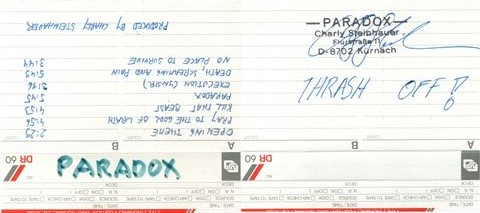 A
B
OPENING THEME 2:23
PRAY TO THE GODZ OF WRATH 4:54
KILL THAT BEAST 4:53
PARADOX 5:45
EXECUTION (INSTR.) 3:16
DEATH, SCREAMING AND PAIN 5:43
NO PLACE TO SURVIVE 3:44
PRODUCED BY CHARLY STEINHAUER
DR 60
PARADOX
—PARADOX—
Charly Steinhauer
Flurstraße 11
D-8702 Kürnach
THRASH OFF!
A
B
DR 60